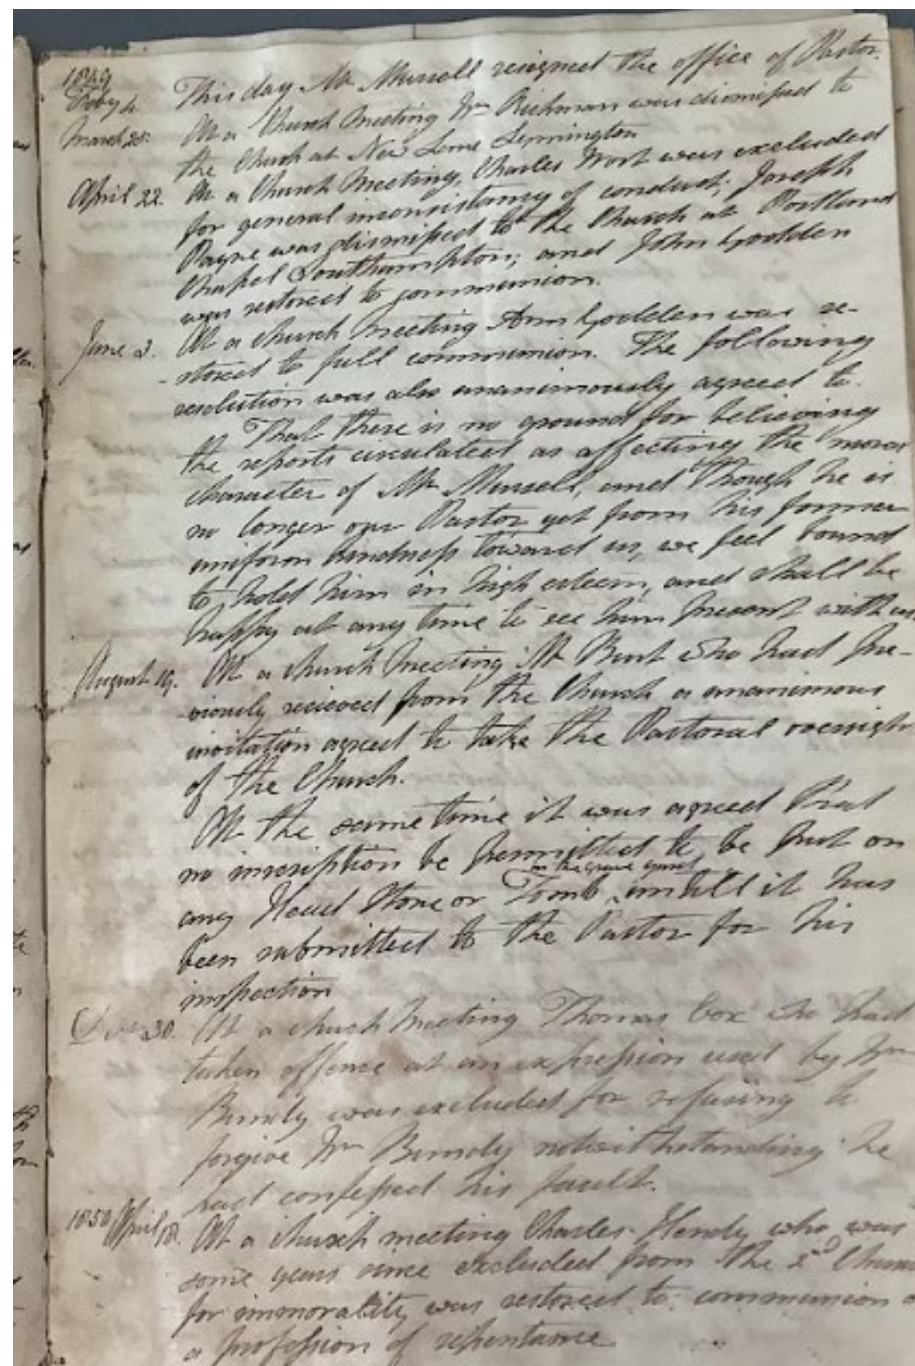 1849
Feby 4. This day Mr Mursell resigned the office of Pastor.
March 25. At a Church Meeting Wm Richman was dismissed to
the Church at New Lane Lymington
April 22. At a Church Meeting, Charles Wort was excluded
for general inconsistency of conduct; Joseph
Payne was dismissed to the Church at Portland
Chapel Southampton; and John Godden
was restored to communion.
June 3. At a church meeting Ann Godden was re-
-stored to full communion. The following
resolution was also unanimously agreed to.
That there is no ground for believing
the reports circulated as affecting the moral
character of Mr Mursell, and though he is
no longer our Pastor yet from his former
uniform kindness toward us, we feel bound
to hold him in high esteem, and shall be
happy at any time to see him present with us.
August 19. At a church meeting Mr Burt who had pre-
-viously recieved from the Church a unanimous
invitation agreed to take the Pastoral oversight
of the Church.
At the same time it was agreed that
no inscription be permitted to be put on
any Head Stone or Tomb in the grave yard untill it has
been submitted to the Pastor for his
inspection
Dec 30. At a church meeting Thomas Cox who had
taken offence at an expression used by Wm
was excluded for refusing to
forgive Wm notwithstanding he
had confessed his fault.
1850 April 18. At a church meeting Charles Hendy who was
some years since excluded from the sd Church
for immorality, was restored to communion
a profession of repentance